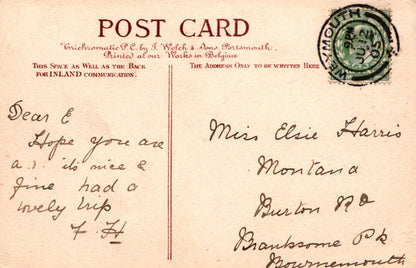 POST CARD
Trichromatic P.C. by F. Welch & Sons, Portsmouth.
Printed at our Works in Belgium
THIS SPACE AS WELL AS THE BACK
FOR INLAND COMMUNICATION.
THE ADDRESS ONLY TO BE WRITTEN HERE
WEYMOUTH
Dear E
Hope you are
a.1. it's nice &
fine had a
lovely trip
F H
Miss Elsie Harris
Montana
Burton Rd
Branksome Pk
Bournemouth